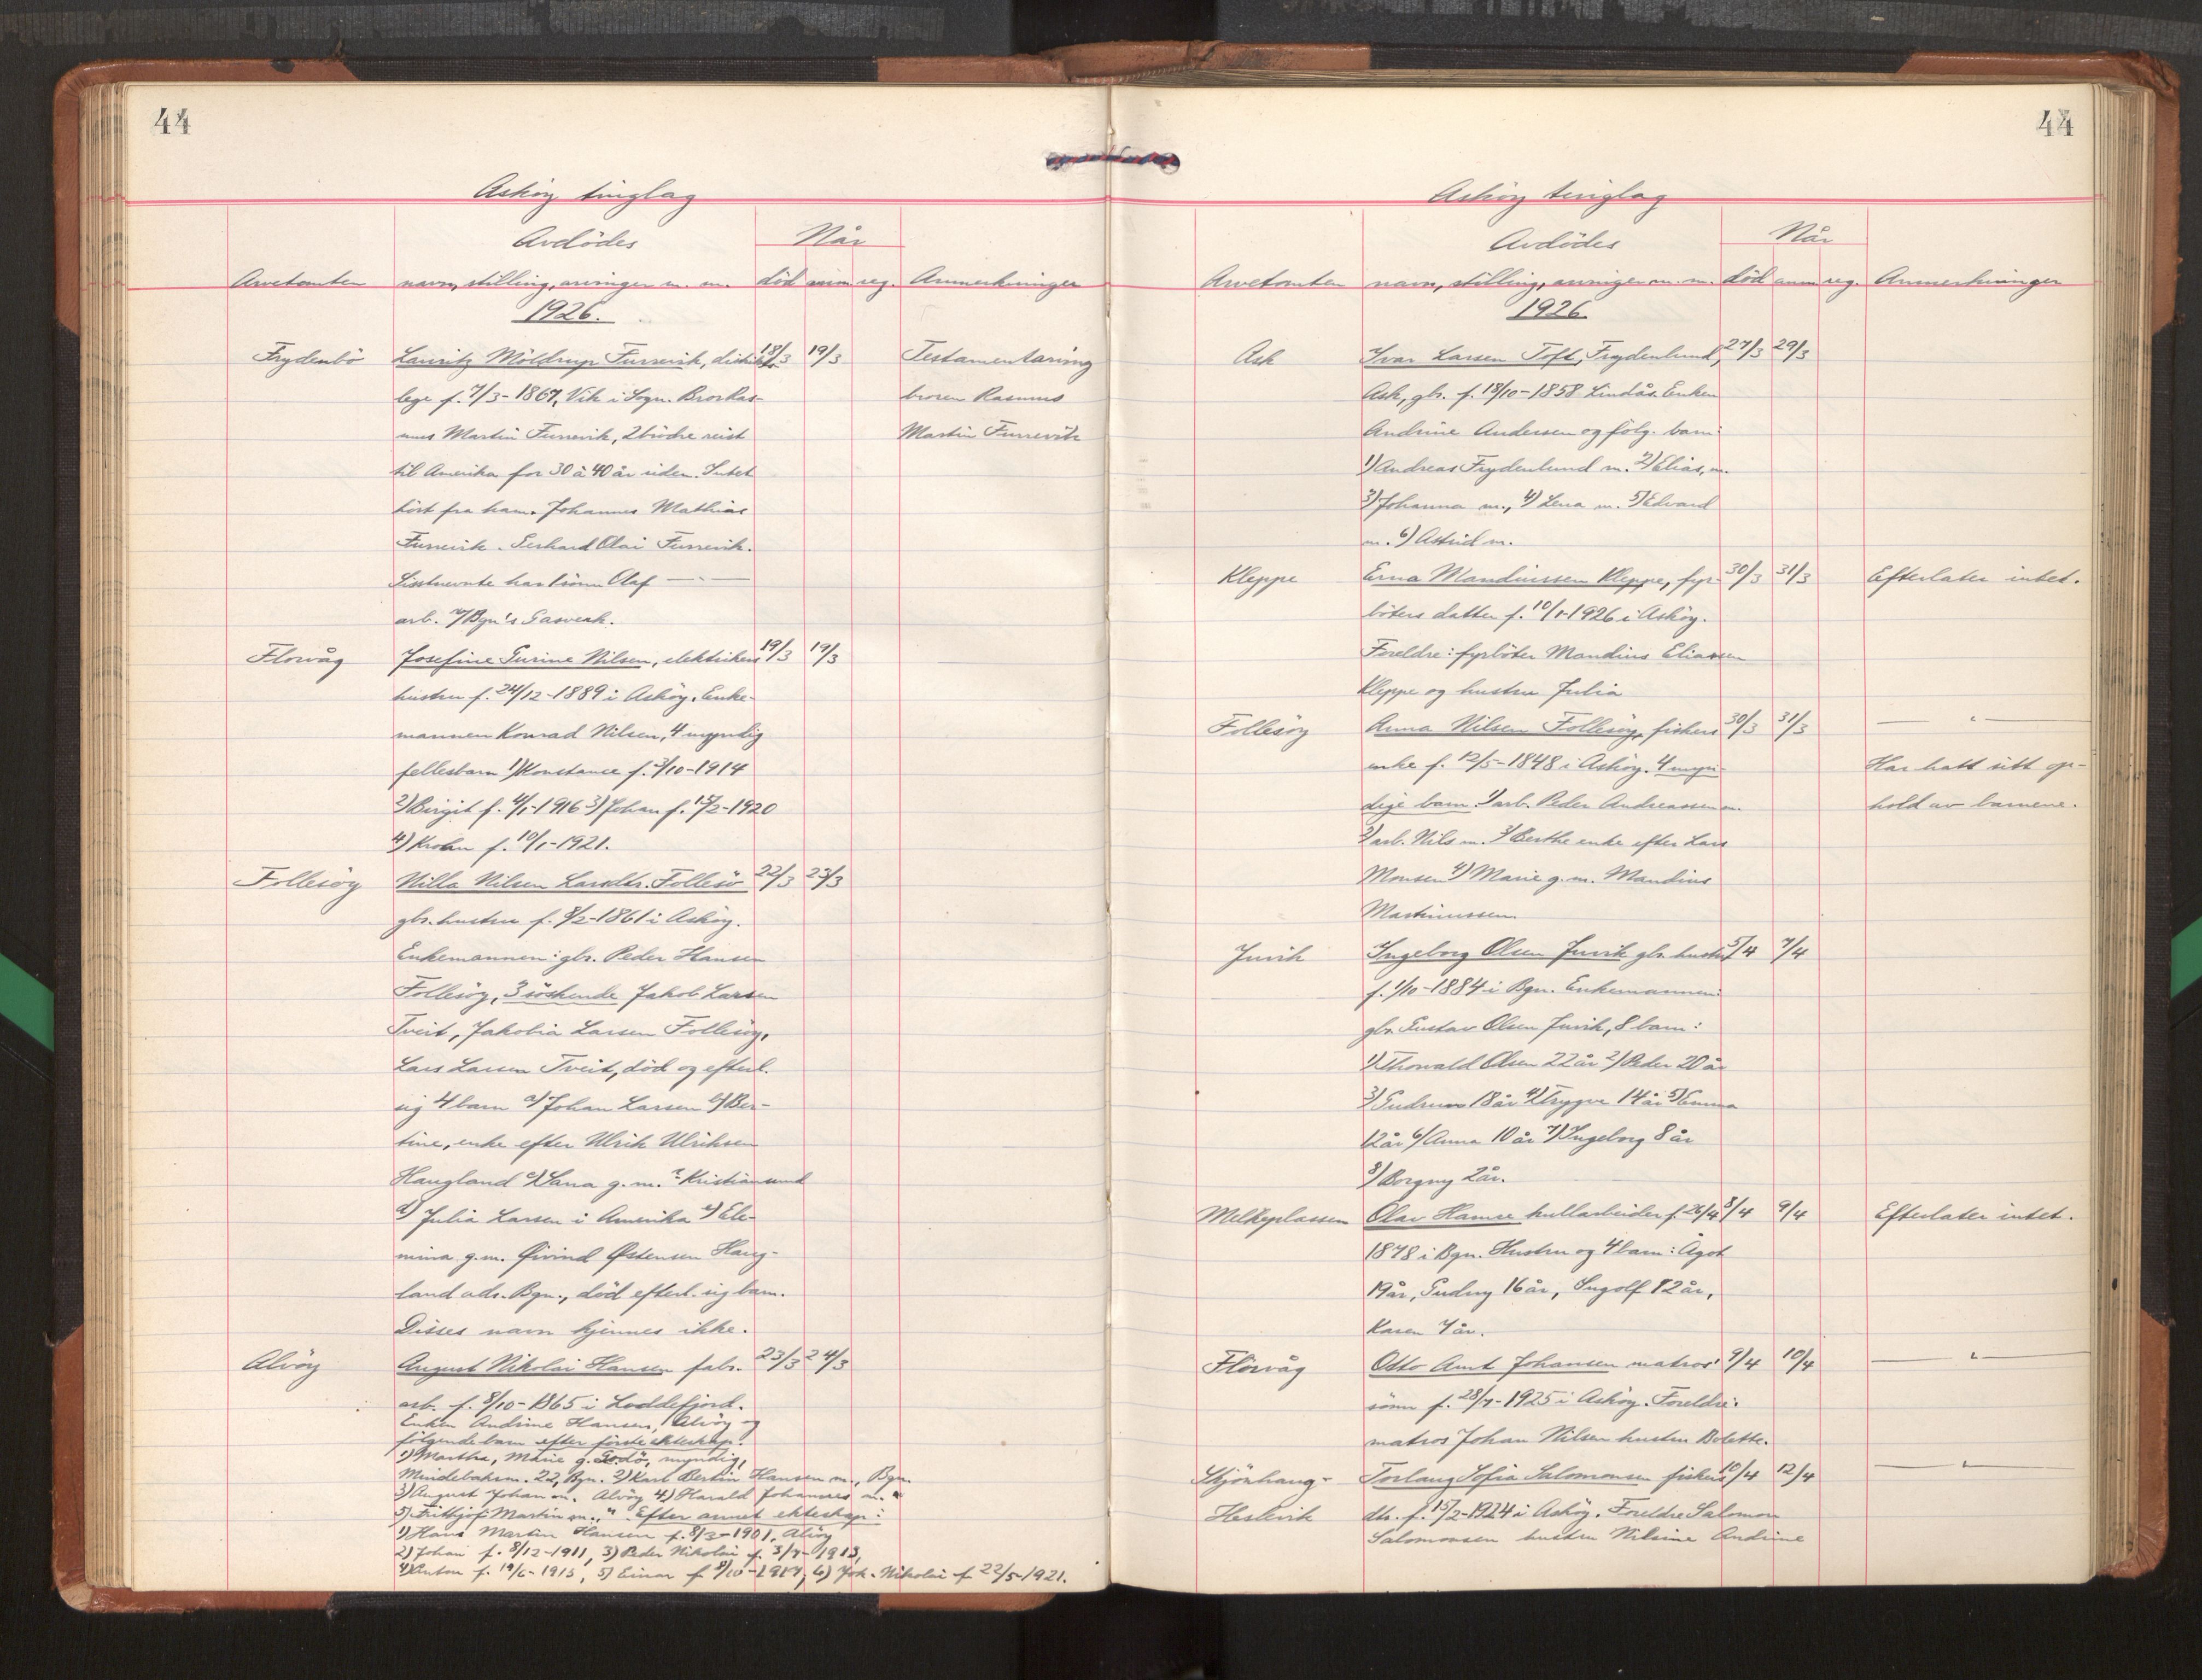 44
Askøy tinglag
Avdödes
Når
Arvetomten navn, stilling, arvinger m. m. död anm. reg. Anmerkninger
1926.
Frydenbö Lauritz Möldrup Furrevik, distrikts- 18/3 19/3 Testamentarving
lege f. 7/3-1867, Vik i Sogn. Bror Ras- broren Rasmus
mus Martin Furrevik, 2 brödre reist Martin Furrevik
til Amerika for 30 à 40 år siden. Intet
hört fra ham. Johannes Mathias
Furrevik. Gerhard Olai Furrevik.
Sistnevnte har 1 sönn Olaf — " —
arb. v/Bgn's Gasverk.
Florvåg Josefine Gurine Nilsen, elektrikers 19/3 19/3
hustru f. 24/12-1889 i Asköy. Enke-
mannen Konrad Nilsen, 4 umyndig
fellesbarn 1) Konstance f. 3/10-1914
2) Birgit f. 4/1-1916 3) Johan f. 15/2-1920
4) f. 10/1-1921.
Follesöy Nilla Nilsen Larsdtr. Follesö 22/3 23/3
gbr. hustru f. 8/2-1861 i Asköy.
Enkemannen: gbr. Peder Hansen
Follesöy, 3 söskende Jakob Larsen
Tveit, Jakobia Larsen Follesöy,
Lars Larsen Tveit, död og efterl.
sig 4 barn a) Johan Larsen b) Ber-
tine, enke efter Ulrik Ulriksen
Haugland c) g. m. ? Kristiansund
d) Julia Larsen i Amerika e) Ele-
mina g. m. Øivind Østensen Haug-
land ads. Bgn., död efterl. sig barn.
Disses navn kjennes ikke.
Alvöy August Nikolai Hansen fabr. 23/3 24/3
arb. f. 8/10-1865 i Loddefjord.
Enken Andrine Hansen, Alvöy og
fölgende barn efter förste ekteskap:
1) Martha, Marie g. Godö, myndig,
22, Bgn. 2) Karl Bertin Hansen m., Bgn.
3) August Johan m. Alvöy 4) Harald Johannes m. "
5) Frithjof Martin m., " Efter annet ekteskap:
1) Hans Martin Hansen f. 8/3-1901, Alvöy
2) Johan f. 8/12-1911, 3) Peder Nikolai f. 3/7-1913,
4) Anton f. 19/6-1915, 5) Einar f. 8/10-1917, 6) Joh. Nikolai f. 22/5-1921.
44
Asköy tinglag
Avdödes
Når
Arvetomten navn, stilling, arvinger m. m. död anm. reg. Anmerkninger
1926
Ask Ivar Larsen Toft, Frydenlund, 27/3 29/3
Ask, gbr. f. 18/10-1858 Lindås. Enken
Andrine Andersen og fölg. barn:
1) Andreas Frydenlund m. 2) Elias, m.
3) Johanna m., 4) Lena m. 5) Edvard
m. 6) Astrid m.
Kleppe Erna Mandinssen Kleppe, fyr- 30/3 31/3 Efterlater intet.
böters datter f. 10/1-1926 i Asköy.
Foreldre: fyrböter Mandius Eliassen
Kleppe og hustru Julia
Follesöy Anna Nilsen Follesöy, fiskers 30/3 31/3 — " —
enke f. 12/5-1848 i Asköy. 4 myn- Har hatt sitt op-
dige barn. 1) arb. Peder Andreassen m. hold av barnene.
2) arb. Nils m. 3) Berthe enke efter Lars
Monsen 4) Marie g. m. Mandius
Martinussen
Juvik Ingeborg Olsen Juvik gbr. hustru 5/4 7/4
f. 1/10-1884 i Bgn. Enkemannen:
gbr. Gustav Olsen Juvik, 8 barn:
1) Thorvald Olsen 22 år 2) Peder 20 år
3) Gudrun 18 år 4) Trygve 14 år 5) Emma
12 år 6) Anna 10 år 7) Ingeborg 8 år
8) Borgny 2 år.
Melkeplassen Olav Hamre kullarbeider f. 26/4 8/4 9/4 Efterlater intet.
1878 i Bgn. Hustru og 4 barn: Ågot
19 år, Gudny 16 år, Ingolf 12 år,
Karen 7 år.
Florvåg Otto Arnt Johansen matros' 9/4 10/4 — " —
sönn f. 28/7-1925 i Asköy. Foreldre:
matros Johan Nilsen hustru Bolette.
Skjönhaug- Torlaug Sofia Salomonsen fiskers 10/4 12/4 — " —
Heslevik dtr. f. 15/2-1924 i Asköy. Foreldre Salomon
Salomonsen hustru Nilsine Andrine